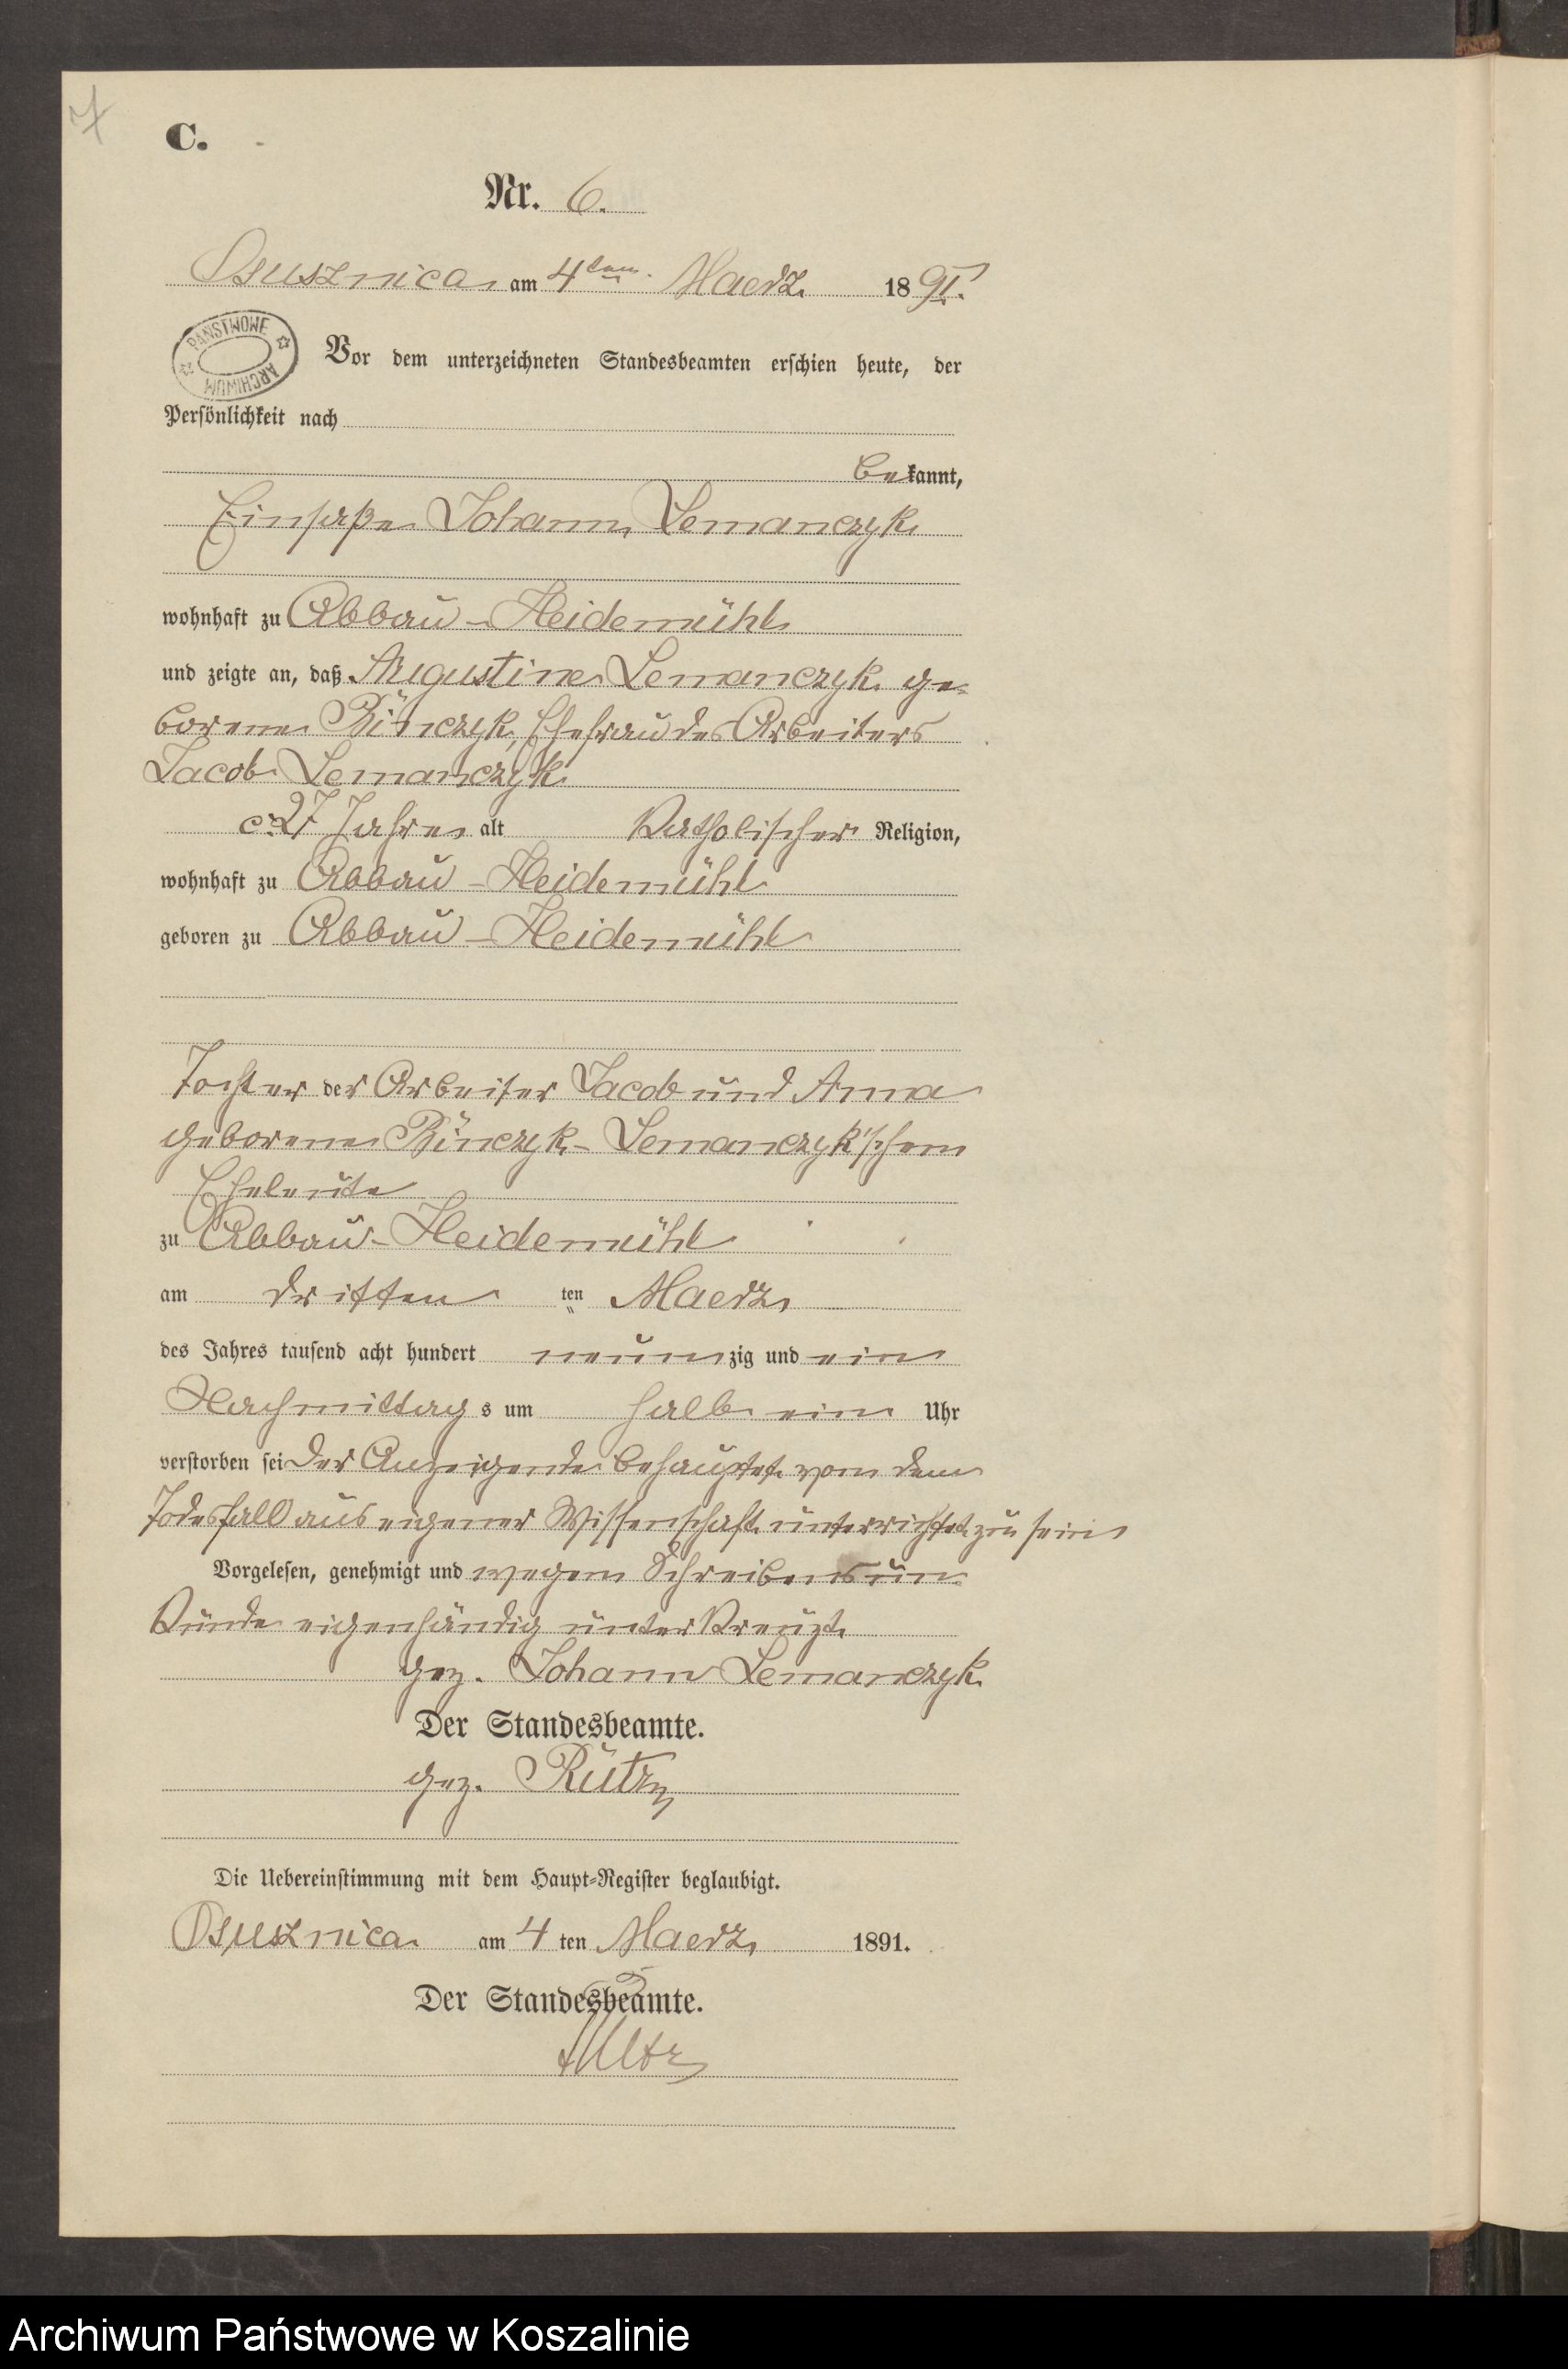 7
C.
Nr. 6.
Osusznica am 4ten Maerz 1891.
PAŃSTWOWE ARCHIWUM
Vor dem unterzeichneten Standesbeamten erschien heute, der
Persönlichkeit nach
bekannt,
Einsaße Johann Lemanczyk
wohnhaft zu Abbau-Heidemühl
und zeigte an, daß Augustine Lemanczyk ge-
borene Binczyk, Ehefrau des Arbeiters
Jacob Lemanczyk
c. 27 Jahre alt Katholischer Religion,
wohnhaft zu Abbau-Heidemühl
geboren zu Abbau-Heidemühl
Tochter der Arbeiter Jacob und Anna
geborene Binczyk-Lemanczyk'schen
Eheleute
zu Abbau-Heidemühl
am dritten ten Maerz
des Jahres tausend acht hundert neunzig und ein
Nachmittags um halb ein Uhr
verstorben sei Der Anzeigende behauptet von dem
Todesfall aus eigener Wissenschaft unterrichtet zu sein
Vorgelesen, genehmigt und wegen Schreibensun
Kunde eigenhändig unterkreuzt
gez. Johann Lemanczyk
Der Standesbeamte.
gez. Rütz
Die Uebereinstimmung mit dem Haupt-Register beglaubigt.
Osusznica am 4 ten Maerz 1891.
Der Standesbeamte.
Rütz
Archiwum Państwowe w Koszalinie